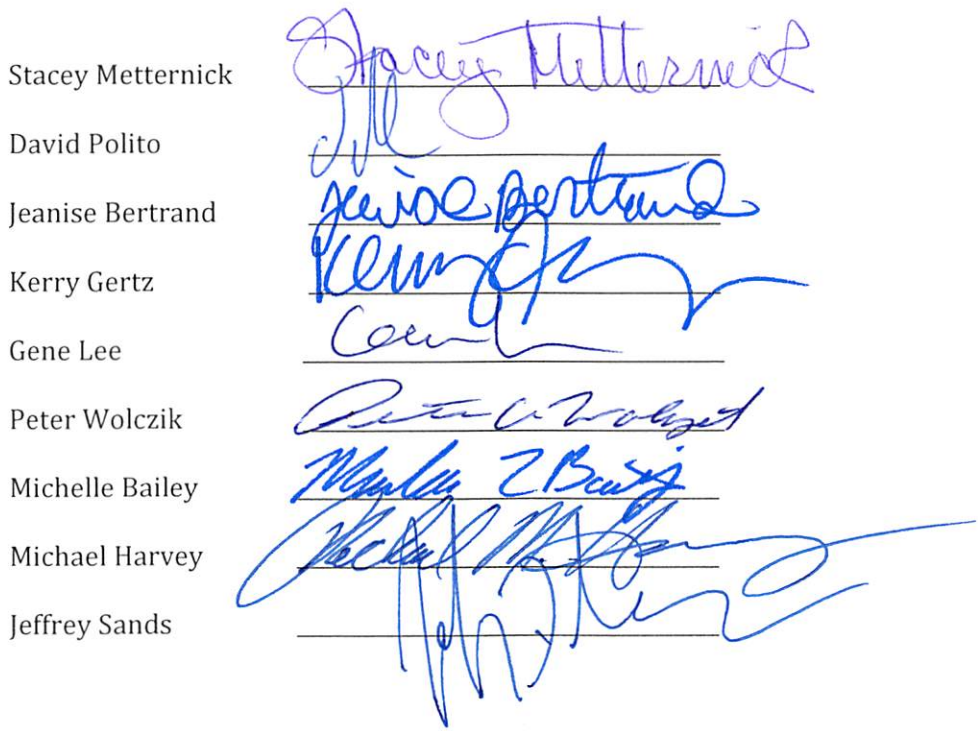 Stacey Metternick Stacey Metternick
David Polito
Jeanise Bertrand Jeanise Bertrand
Kerry Gertz Kerry
Gene Lee
Peter Wolczik Peter
Michelle Bailey
Michael Harvey Michael M.
Jeffrey Sands